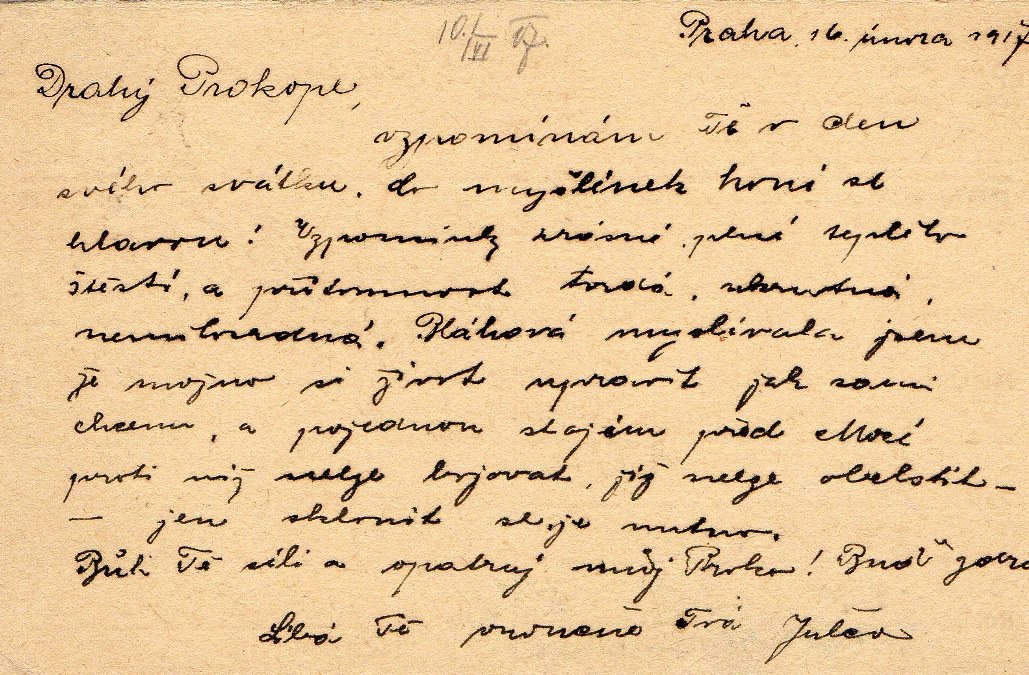 10./VI 17.
Praha, 16. února 1917
Drahý Prokope,
vzpomínám Tě v den
svého svátku. Co myšlének honí se
hlavou! Vzpomínky krásné, plné teplého
štěstí, a přítomnost tvrdá, ukrutná,
nemilosrdná. Bláhová myslívala jsem
že možno si život upravit jak sami
chceme, a pojednou stojím před Mocí
proti níž nelze bojovat, již nelze obelstít –
– jen sklonit se je nutno.
Bůh Tě síli a opatruj můj Proko! Buď zdráv
Líbá Tě vroucně Tvá Julča